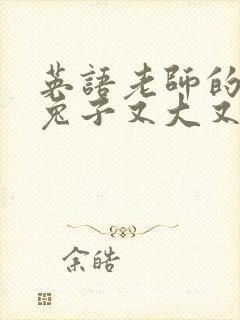 英語老師的
兔子又大又
余皓